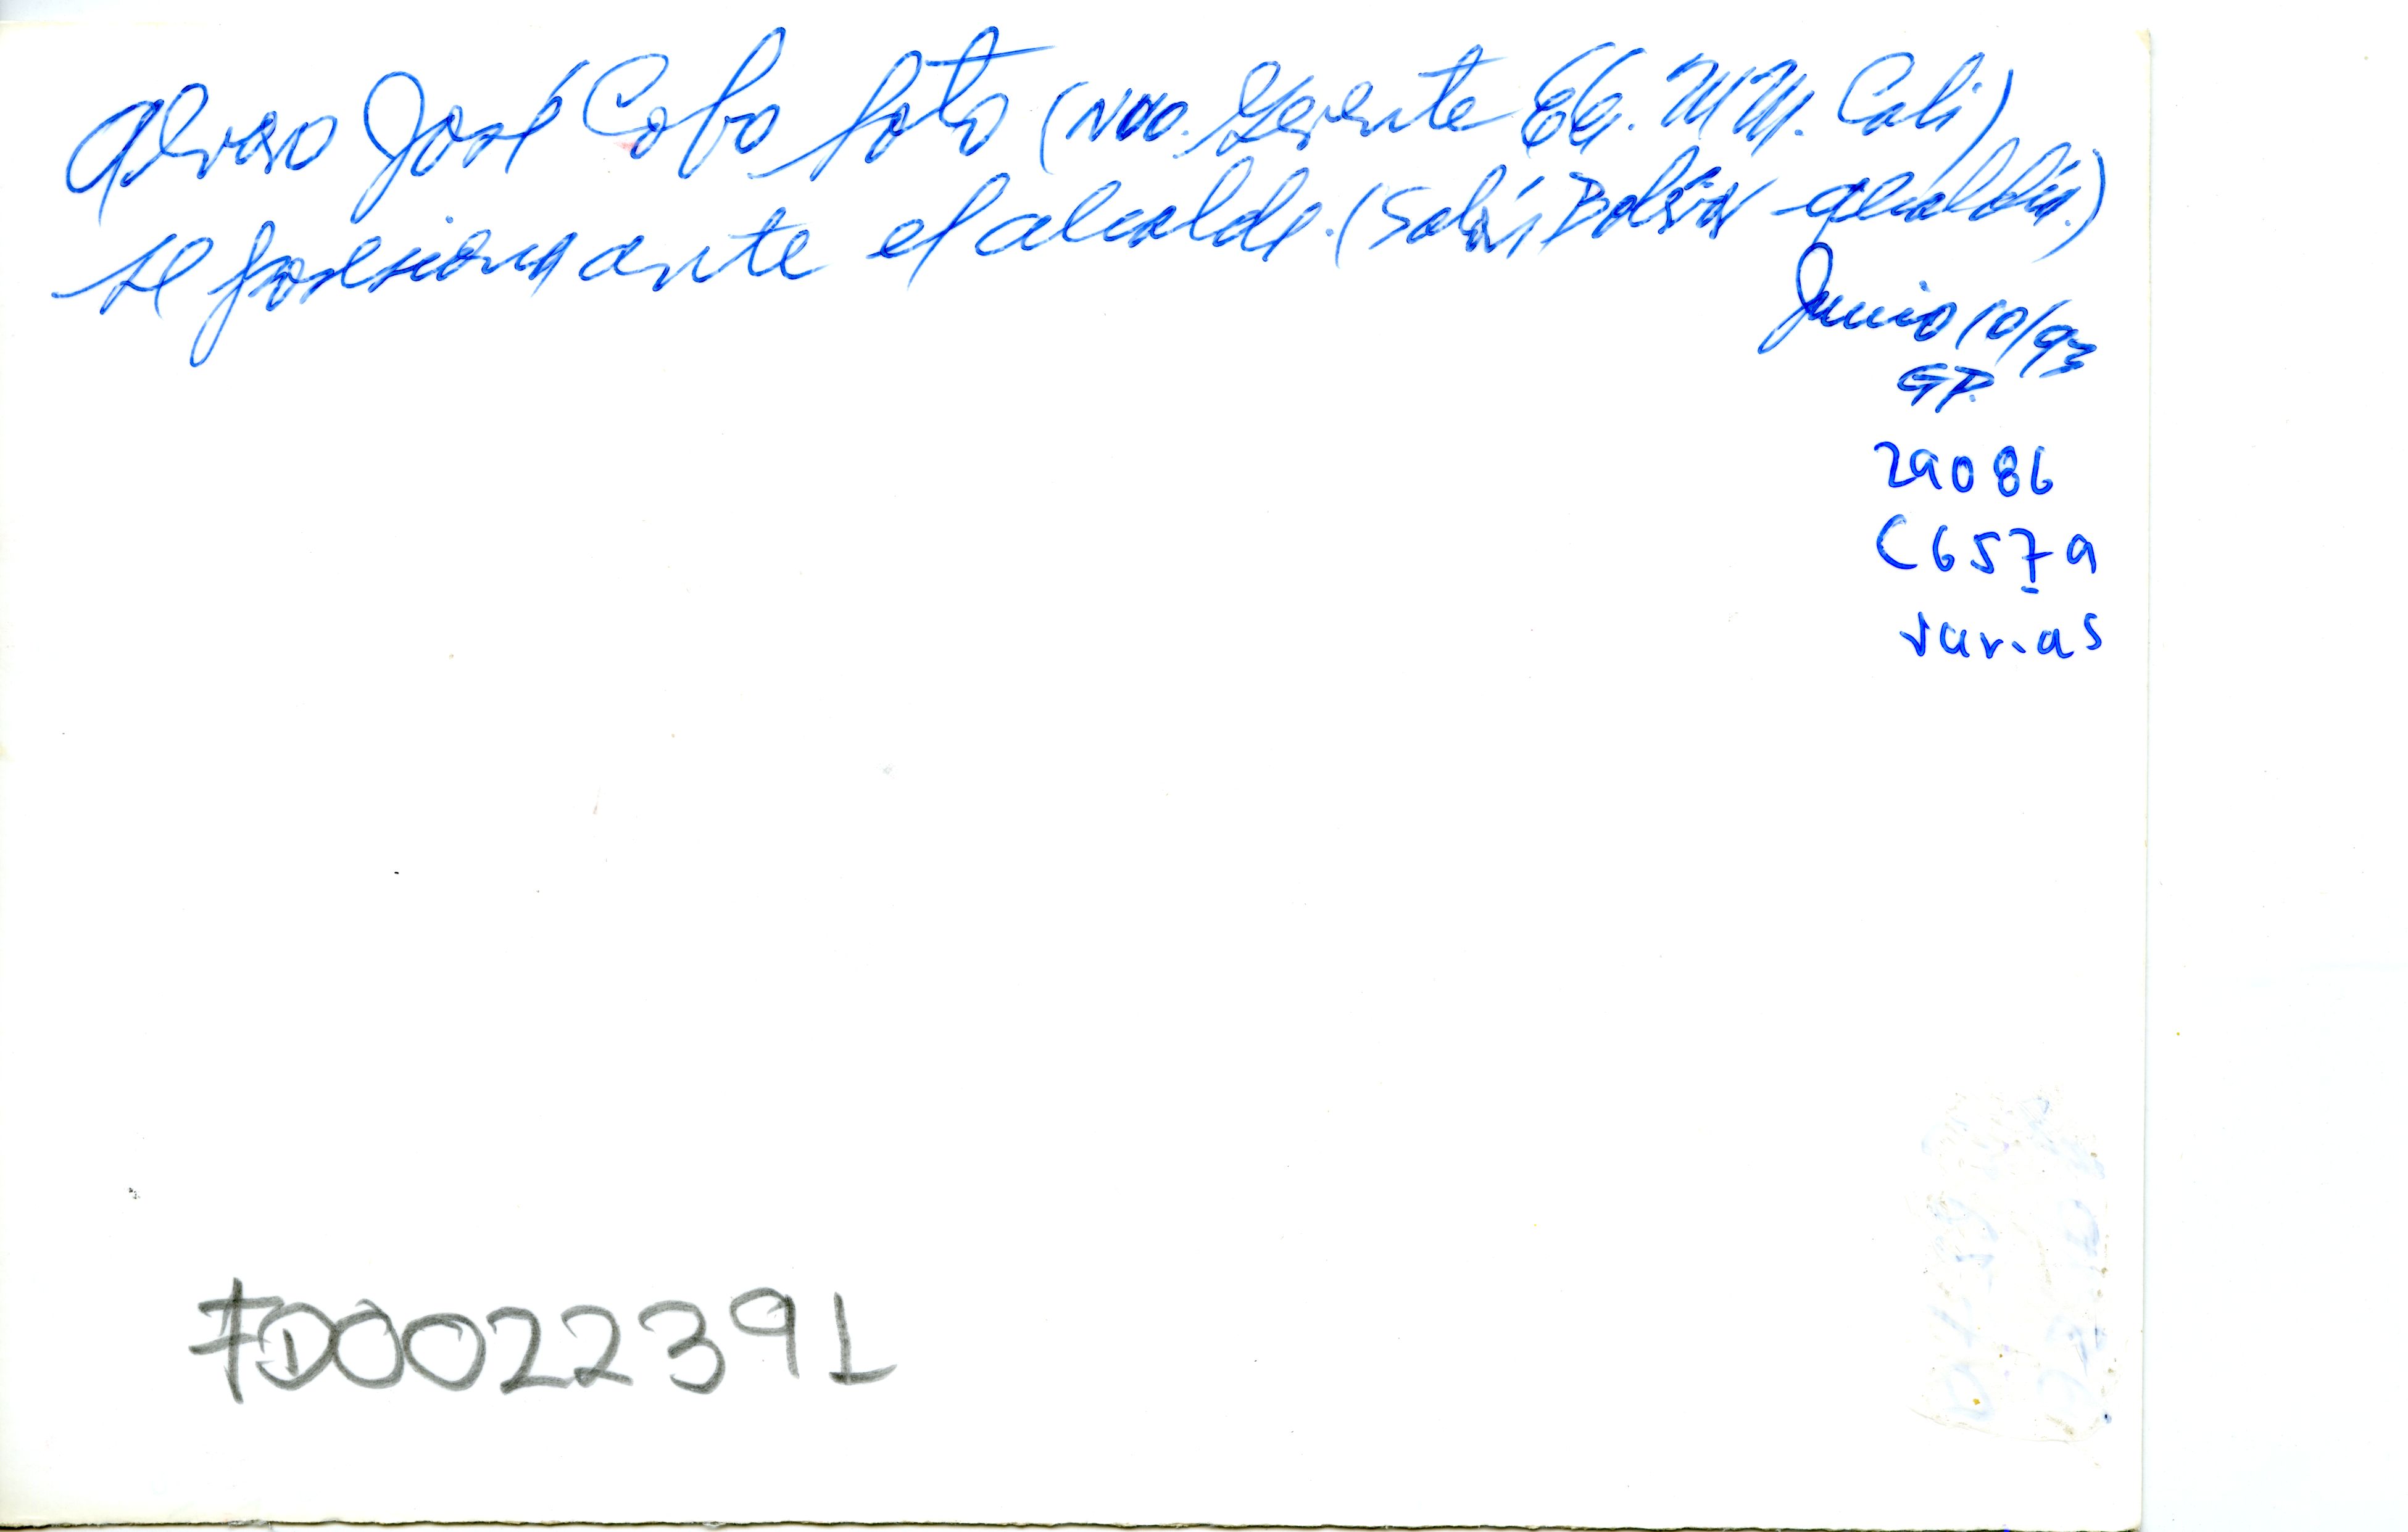 Alvaro José Cobo Soto (Nvo. Gerente EE. MM. Cali)
se posesiona ante el alcalde. (Salón Bolívar - alcaldía.)
Junio 10/93
GP.
29086
C657a
varias
FD0022391